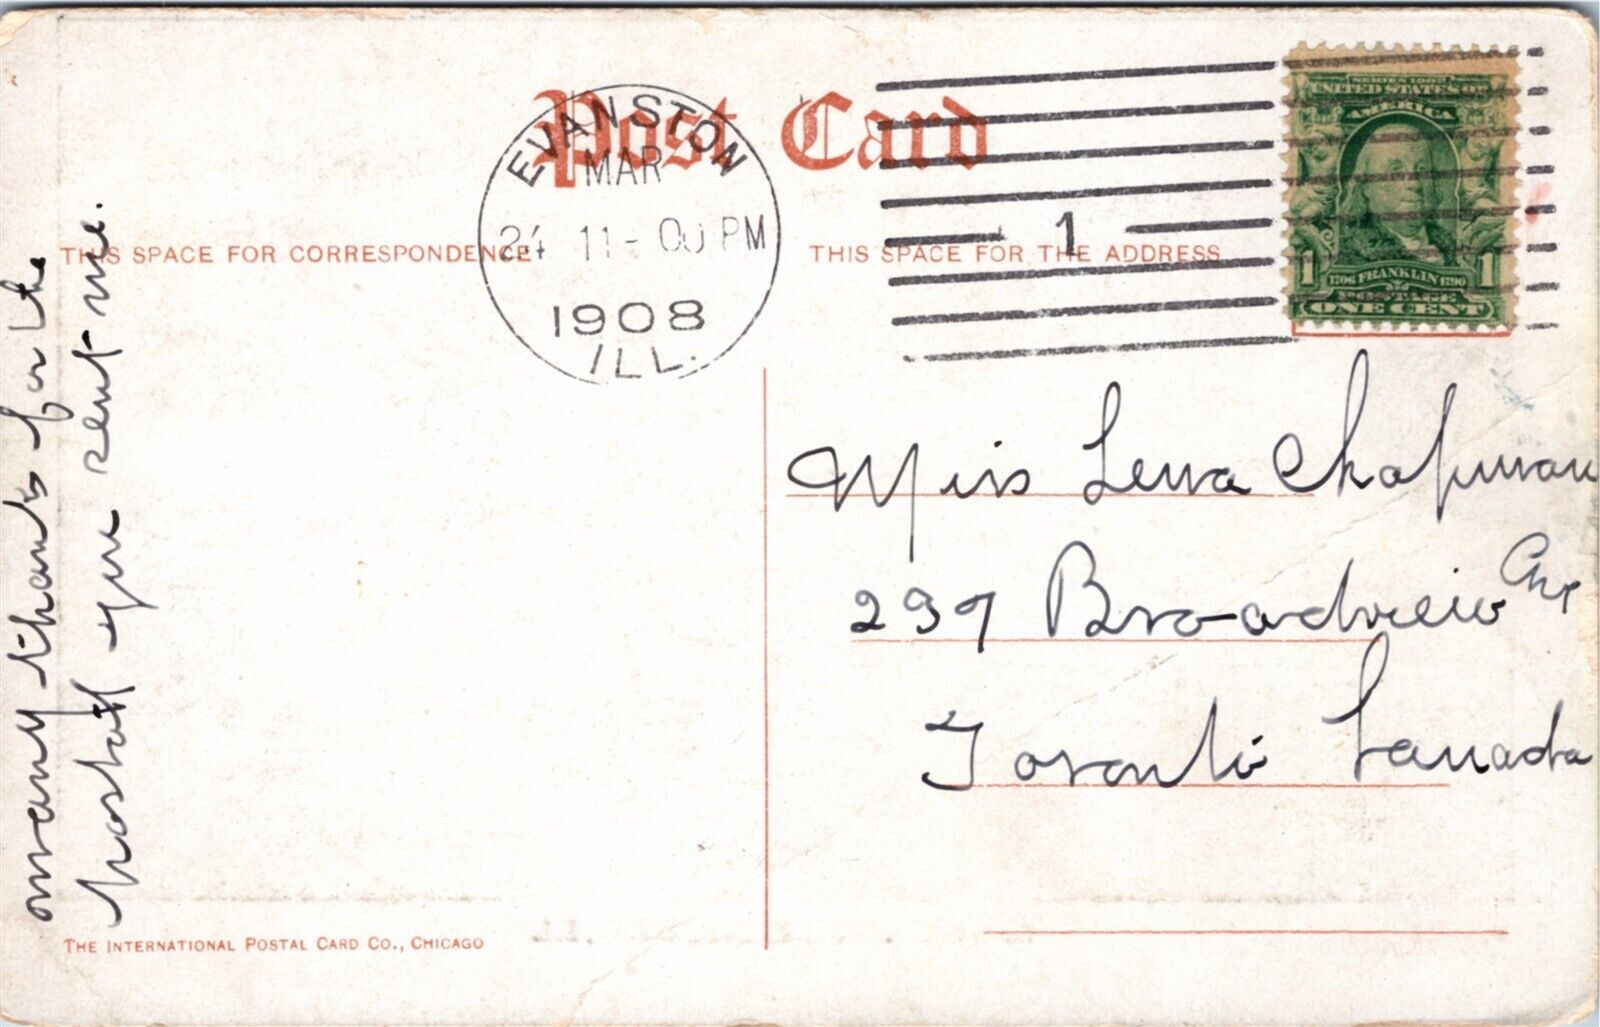 Post Card
EVANSTON
MAR
24 11-00 PM
1908
ILL.
1
SERIES 1902
UNITED STATES OF
AMERICA
1 1
1706 FRANKLIN 1790
POSTAGE
ONE CENT
THIS SPACE FOR CORRESPONDENCE
THIS SPACE FOR THE ADDRESS
many thanks for the
postal you sent me.
Miss Lena Chapman
297 Broadview Ave
Toronto Canada
THE INTERNATIONAL POSTAL CARD CO., CHICAGO